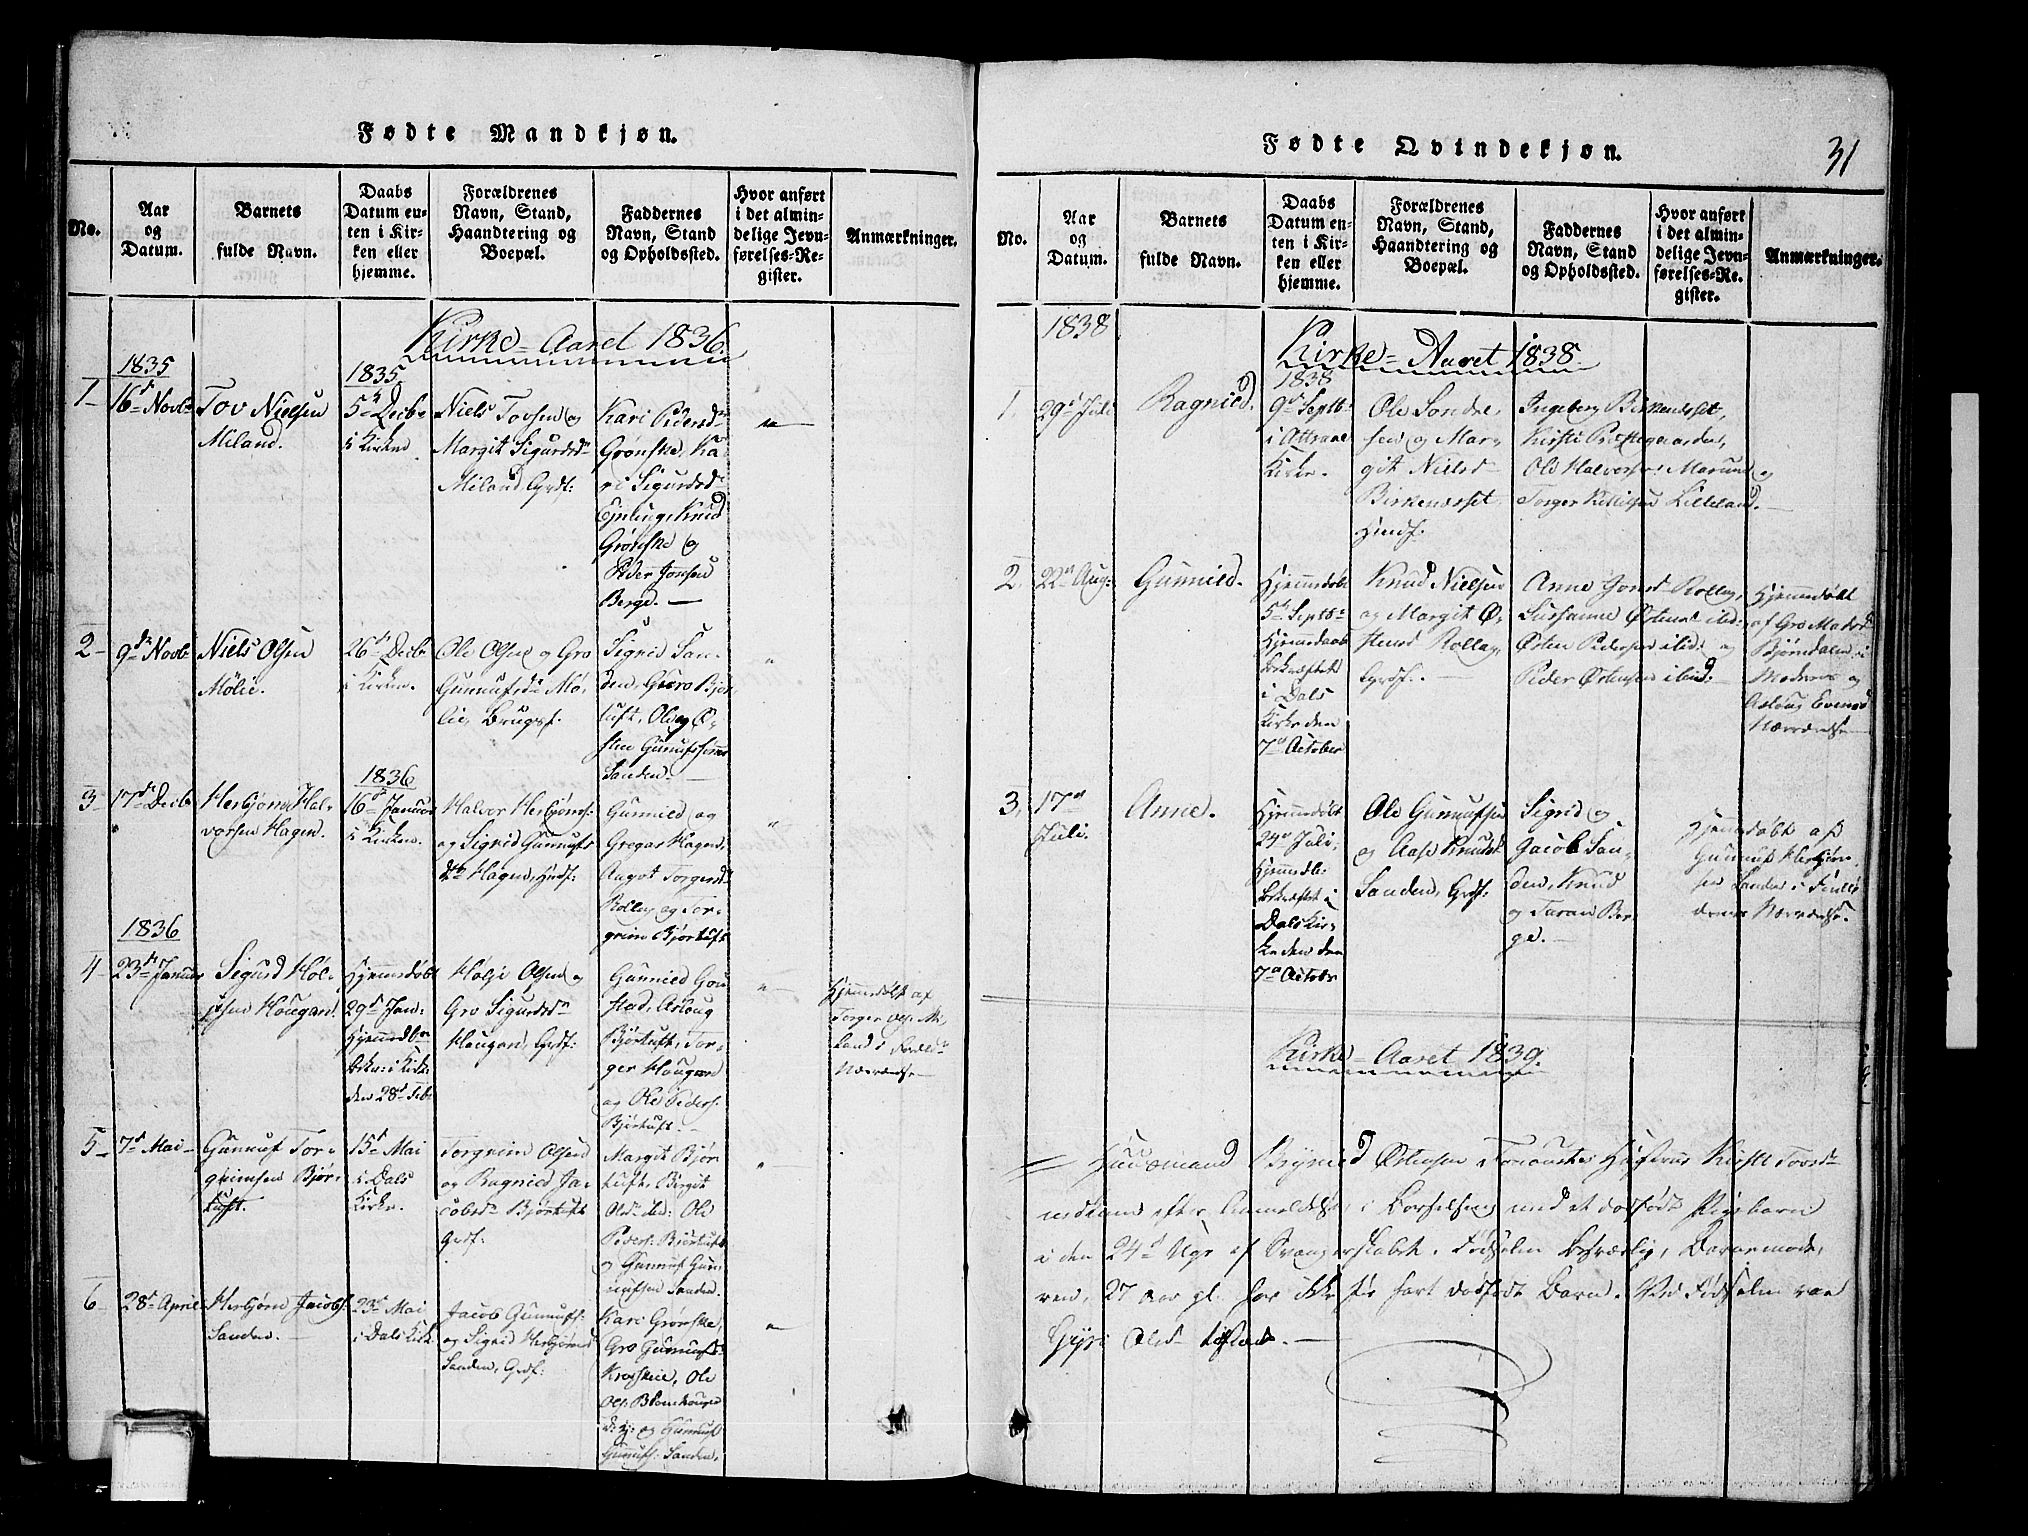 Fødte Mandkjøn.
No.
Aar
og
Datum.
Barnets
fulde Navn.
Daabs
Datum en-
ten i Kir-
ken eller
hjemme.
Forældrenes
Navn, Stand,
Haandtering og
Boepæl.
Faddernes
Navn, Stand
og Opholdssted.
Hvor anført
i det almin-
delige Jevn-
førelses-Re-
gister.
Anmærkninger.
Kirke-Aaret 1836.
1835
1835
1
16d Novb
Tov Nielsen
Miland.
5d Decbr
i Kirken
Niels Tovsen og
Margit Sigurdsd
Miland Grdf:
Kari Pedersd
Grønske, Ka-
ri Sigurdsd
Knud
Grønske og
Peder Jonsen
Berge. —
2
9d Novb
Niels Olsen
Mølie.
26d Decb
i Kirken.
Ole Olsen og Gro
Gunnufsd Mø-
lie, Brugsf.
Sigrid San-
den, Guro Bjør-
tuft, Ole og Ø-
sten Gunufssønner
Sanden. —
3
17d Decb
Herbjørn Hal-
vorsen Hagen.
1836
16d Januar
i Kirken.
Halvor Herbjørns:
og Sigrid Gunnufs
dr Hagen, Husf:
Gunnild og
Gregar Hagen,
Aagot Torgersd
Rollag og Tor-
grim Bjørtuft
1836
4
23d Januar
Sigurd Høl-
jesen Hougan.
Hjemmedøbt
29d Jan:
Hjemmedb
bekr: i Kirk:
den 28d Feb:
Hølje Olsen og
Gro Sigurdsd
Hougan, Grdf:
Gunnild
Aslaug
Bjørtuft, Tor-
ger Hougan
og Ole Peders:
Bjørtuft. —
Hjemmedøbt af
Torger Ols: Mi-
land i Foræld:
Nærværelse —
5
7d Mai
Gunnuf Tor-
grimsen Bjør-
tuft.
15d Mai
i Dals
Kirke.
Torgrim Olsen
og Ragnild Ja-
cobsd Bjørtuft
Grdf:
Margit Bjør-
tuft, Birgit
Olsd ibid: Ole
Peders: Bjørtuft
og Gunnuf Gun-
nufsen Sanden.
6
28d April
Herbjørn Jacobs:
Sanden. —
23d Mai
i Dals Kirk
Jacob Gunnufs:
og Sigrid Herbjørnsd
Sanden, Grdf:
Kari Grønske,
Gro Gunnufsd
Ole
Ols:
og Gunnuf
Gunnufs: Sanden.
Fødte Qvindekjøn.
31
No.
Aar
og
Datum.
Barnets
fulde Navn.
Daabs
Datum en-
ten i Kir-
ken eller
hjemme.
Forældrenes
Navn, Stand,
Haandtering og
Boepæl.
Faddernes
Navn, Stand
og Opholdssted.
Hvor anført
i det almin-
delige Jevn-
førelses-Re-
gister.
Anmærkninger.
1838
Kirke-Aaret 1838.
1838
1.
29d Juli
Ragnild.
9d Septb:
i Attraae
Kirke.
Ole Sondre-
sen og Mar-
git Nielsd
Birkenæsset
Husf.
Ingeborg Birkenæsset,
Kirsti Præstegaarden,
Ole Halvorsen Marum og
Torger Kittilsen Lilleland. —
2.
22d Aug:
Gunnild.
Hjemmedøbt
5d Septb
Hjemmedaab
bekræftet
i Dals
Kirke den
7d October
Knud Nielsen
og Margit Ø-
stensd Rollag,
Grdf. —
Anne Jonsd Rollag,
Sussanne Østensd ibid:
Østen Pedersen ibid: og
Peder Østensen ibid. —
Hjemmedøbt
af Gro Madsd
Bjørndalen i
Moderens og
Aslaug Evensd
Nærværelse —
3.
17d
Juli.
Anne.
Hjemmedøbt
24d Juli,
Hjemmedb:
bekræftet i
Dals Kir-
ke den
7d Octobr
Ole Gunnufsen
og Aase Knudsd
Sanden, Grdf:
Sigrid og
Jacob San-
den, Knud
og Taran Ber-
ge. —
Hjemmedøbt af
Gunnuf Herbjørn-
sen Sanden i
Nærværelse.
Kirke-Aaret 1839.
Huusmand Brynild Østensen Hustrue Kirsti Tovsd
nedkom efter Anmeldelse, i Barselseng med et dødfødt Pigebarn
i den 24d Uge af Svangerskabet. Fødselen besværlig, Barnemode-
ren, 27 Aar gl. har ikke før havt dødfødt Barn. Ved Fødselen var
Gyri Olsd tilstæde. —